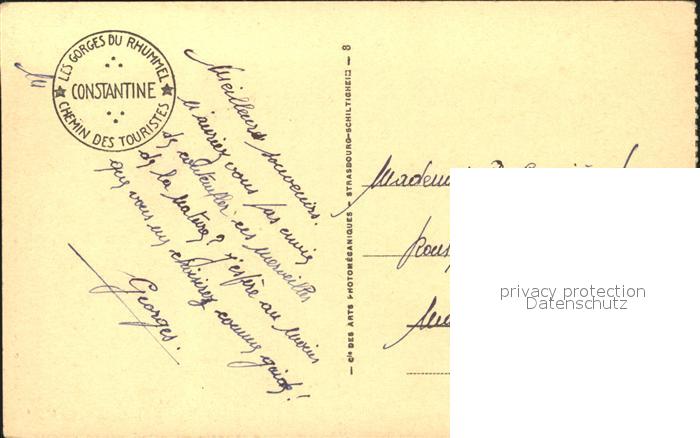 LES GORGES DU RHUMMEL
CONSTANTINE
CHEMIN DES TOURISTES
Meilleurs souvenirs.
N'auriez vous pas envie
de contempler ces merveilles
de la nature? j'espère au moins
que vous me choisirez comme guide!
Georges.
Cie DES ARTS PHOTOMÉCANIQUES - STRASBOURG-SCHILTIGHEIM - 8
privacy protection
Datenschutz